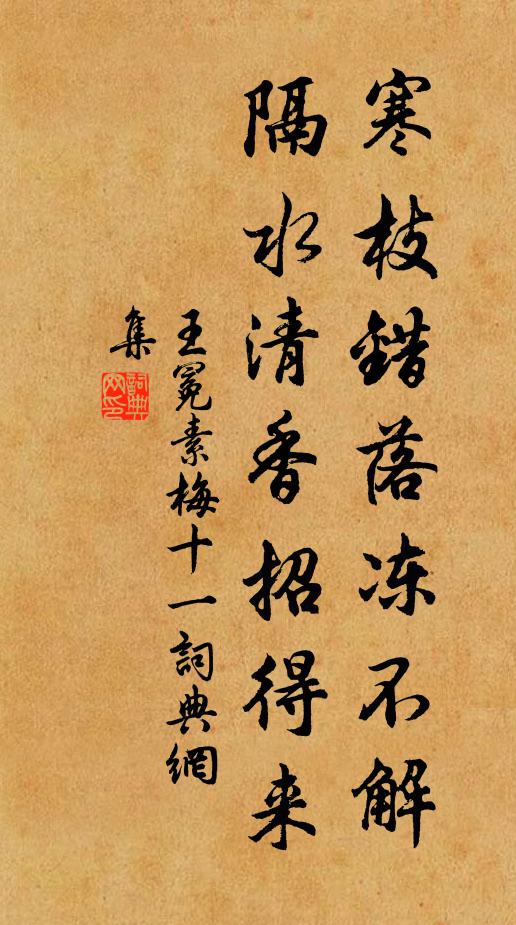 寒枝错落冻不解
隔水清香招得来
王冕素梅十一詞典網
集
詞典网印